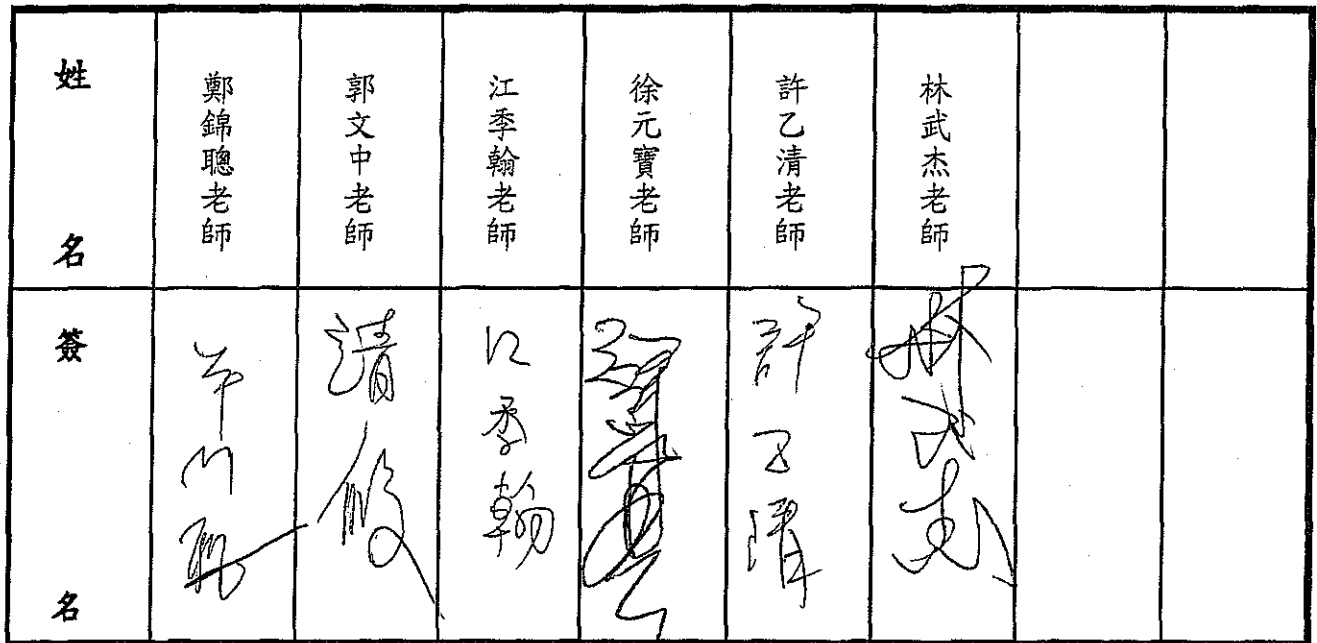 姓名
鄭錦聰老師
郭文中老師
江季翰老師
徐元寶老師
許乙清老師
林武杰老師
簽名
請假
江季翰